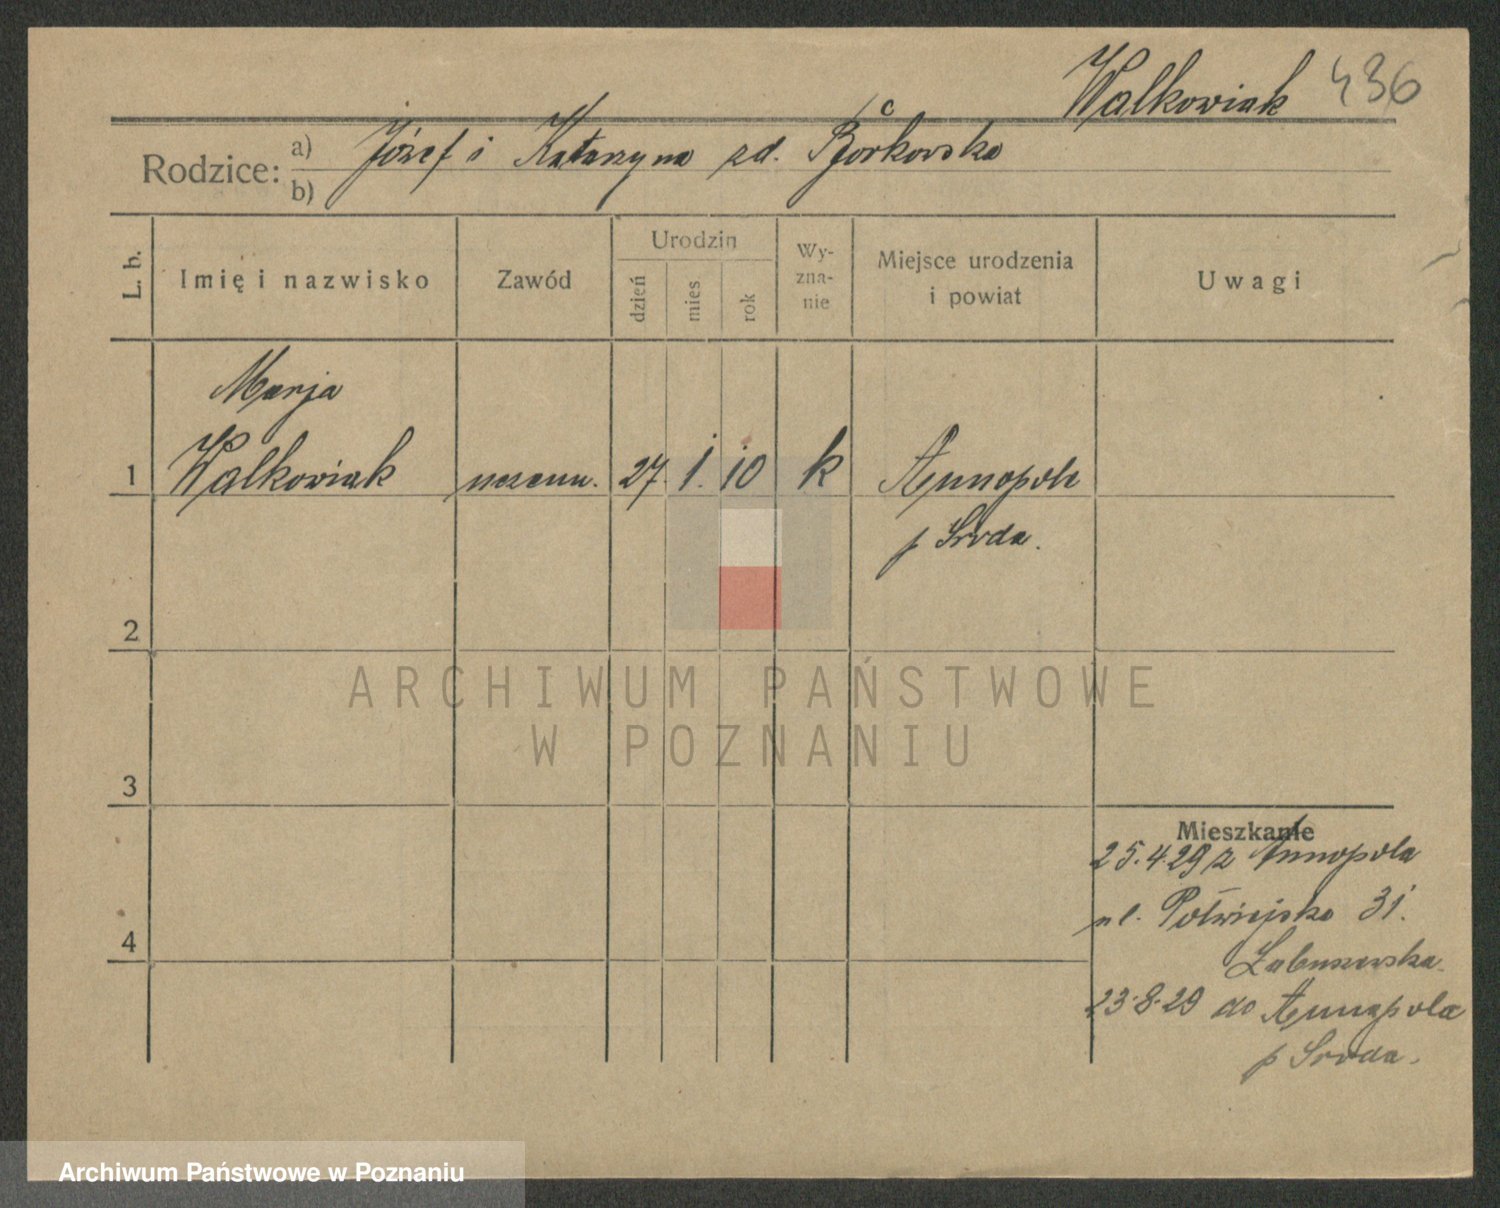 Walkowiak 436
Rodzice: a) Józef i Katarzyna zd. Borkowska
b)
L. b.
Imię i nazwisko
Zawód
Urodzin
dzień
mies
rok
Wy-
zna-
nie
Miejsce urodzenia
i powiat
Uwagi
Marja
1 Walkowiak uczenn. 27. 1. 10 k Annopole
p Środa.
2
ARCHIWUM PAŃSTWOWE
W POZNANIU
3
Mieszkanie
25.4.29 z Annopola
ul. Półwiejska 31.
4
23.8.29 do Annopola
p Środa.
Archiwum Państwowe w Poznaniu